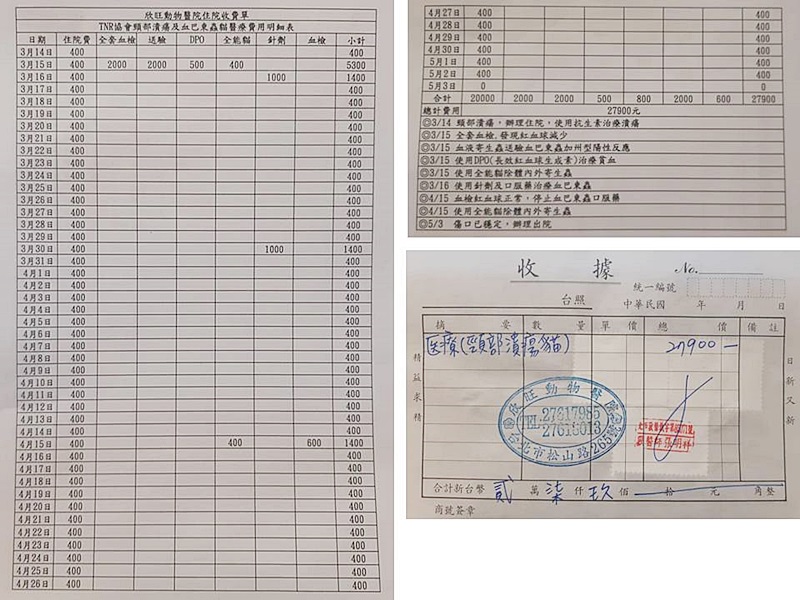 欣旺動物醫院住院收費單
TNR協會頸部潰瘍及血巴東蟲貓醫療費用明細表
日期 住院費 全套血檢 送驗 DPO 全能貓 針劑 血檢 小計
3月14日 400 400
3月15日 400 2000 2000 500 400 5300
3月16日 400 1000 1400
3月17日 400 400
3月18日 400 400
3月19日 400 400
3月20日 400 400
3月21日 400 400
3月22日 400 400
3月23日 400 400
3月24日 400 400
3月25日 400 400
3月26日 400 400
3月27日 400 400
3月28日 400 400
3月29日 400 400
3月30日 400 1000 1400
3月31日 400 400
4月1日 400 400
4月2日 400 400
4月3日 400 400
4月4日 400 400
4月5日 400 400
4月6日 400 400
4月7日 400 400
4月8日 400 400
4月9日 400 400
4月10日 400 400
4月11日 400 400
4月12日 400 400
4月13日 400 400
4月14日 400 400
4月15日 400 400 600 1400
4月16日 400 400
4月17日 400 400
4月18日 400 400
4月19日 400 400
4月20日 400 400
4月21日 400 400
4月22日 400 400
4月23日 400 400
4月24日 400 400
4月25日 400 400
4月26日 400 400
4月27日 400 400
4月28日 400 400
4月29日 400 400
4月30日 400 400
5月1日 400 400
5月2日 400 400
5月3日 0 0
合計 20000 2000 2000 500 800 2000 600 27900
總計費用 27900元
◎3/14 頸部潰瘍，辦理住院，使用抗生素治療潰瘍
◎3/15 全套血檢,發現紅血球減少
◎3/15 血液寄生蟲送驗血巴東蟲加州型陽性反應
◎3/15 使用DPO(長效紅血球生成素)治療貧血
◎3/15 使用全能貓除體內外寄生蟲
◎3/16 使用針劑及口服藥治療血巴東蟲
◎4/15 血檢紅血球正常，停止血巴東蟲口服藥
◎4/15 使用全能貓除體內外寄生蟲
◎5/3 傷口已穩定，辦理出院
收據 No.
統一編號
台照 中華民國 年 月 日
摘要 數量 單價 總價 備註
医療(頸部潰瘍貓) 27900 —
精益求精
日新又新
欣旺動物醫院
TEL:27617985
27615013
台北市松山路265
獸醫師張明梓
合計新台幣 貳 萬 柒 仟 玖 佰 拾 元 角整
商號簽章